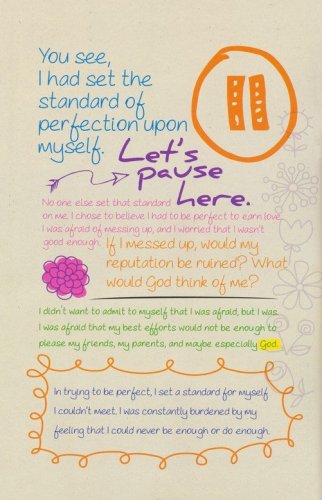 You see,
I had set the
standard of
perfection upon
myself.
Let's
pause
here.
No one else set that standard
on me. I chose to believe I had to be perfect to earn love.
I was afraid of messing up, and I worried that I wasn't
good enough. If I messed up, would my
reputation be ruined? What
would God think of me?
I didn't want to admit to myself that I was afraid, but I was.
I was afraid that my best efforts would not be enough to
please my friends, my parents, and maybe especially God.
In trying to be perfect, I set a standard for myself
I couldn't meet. I was constantly burdened by my
feeling that I could never be enough or do enough.